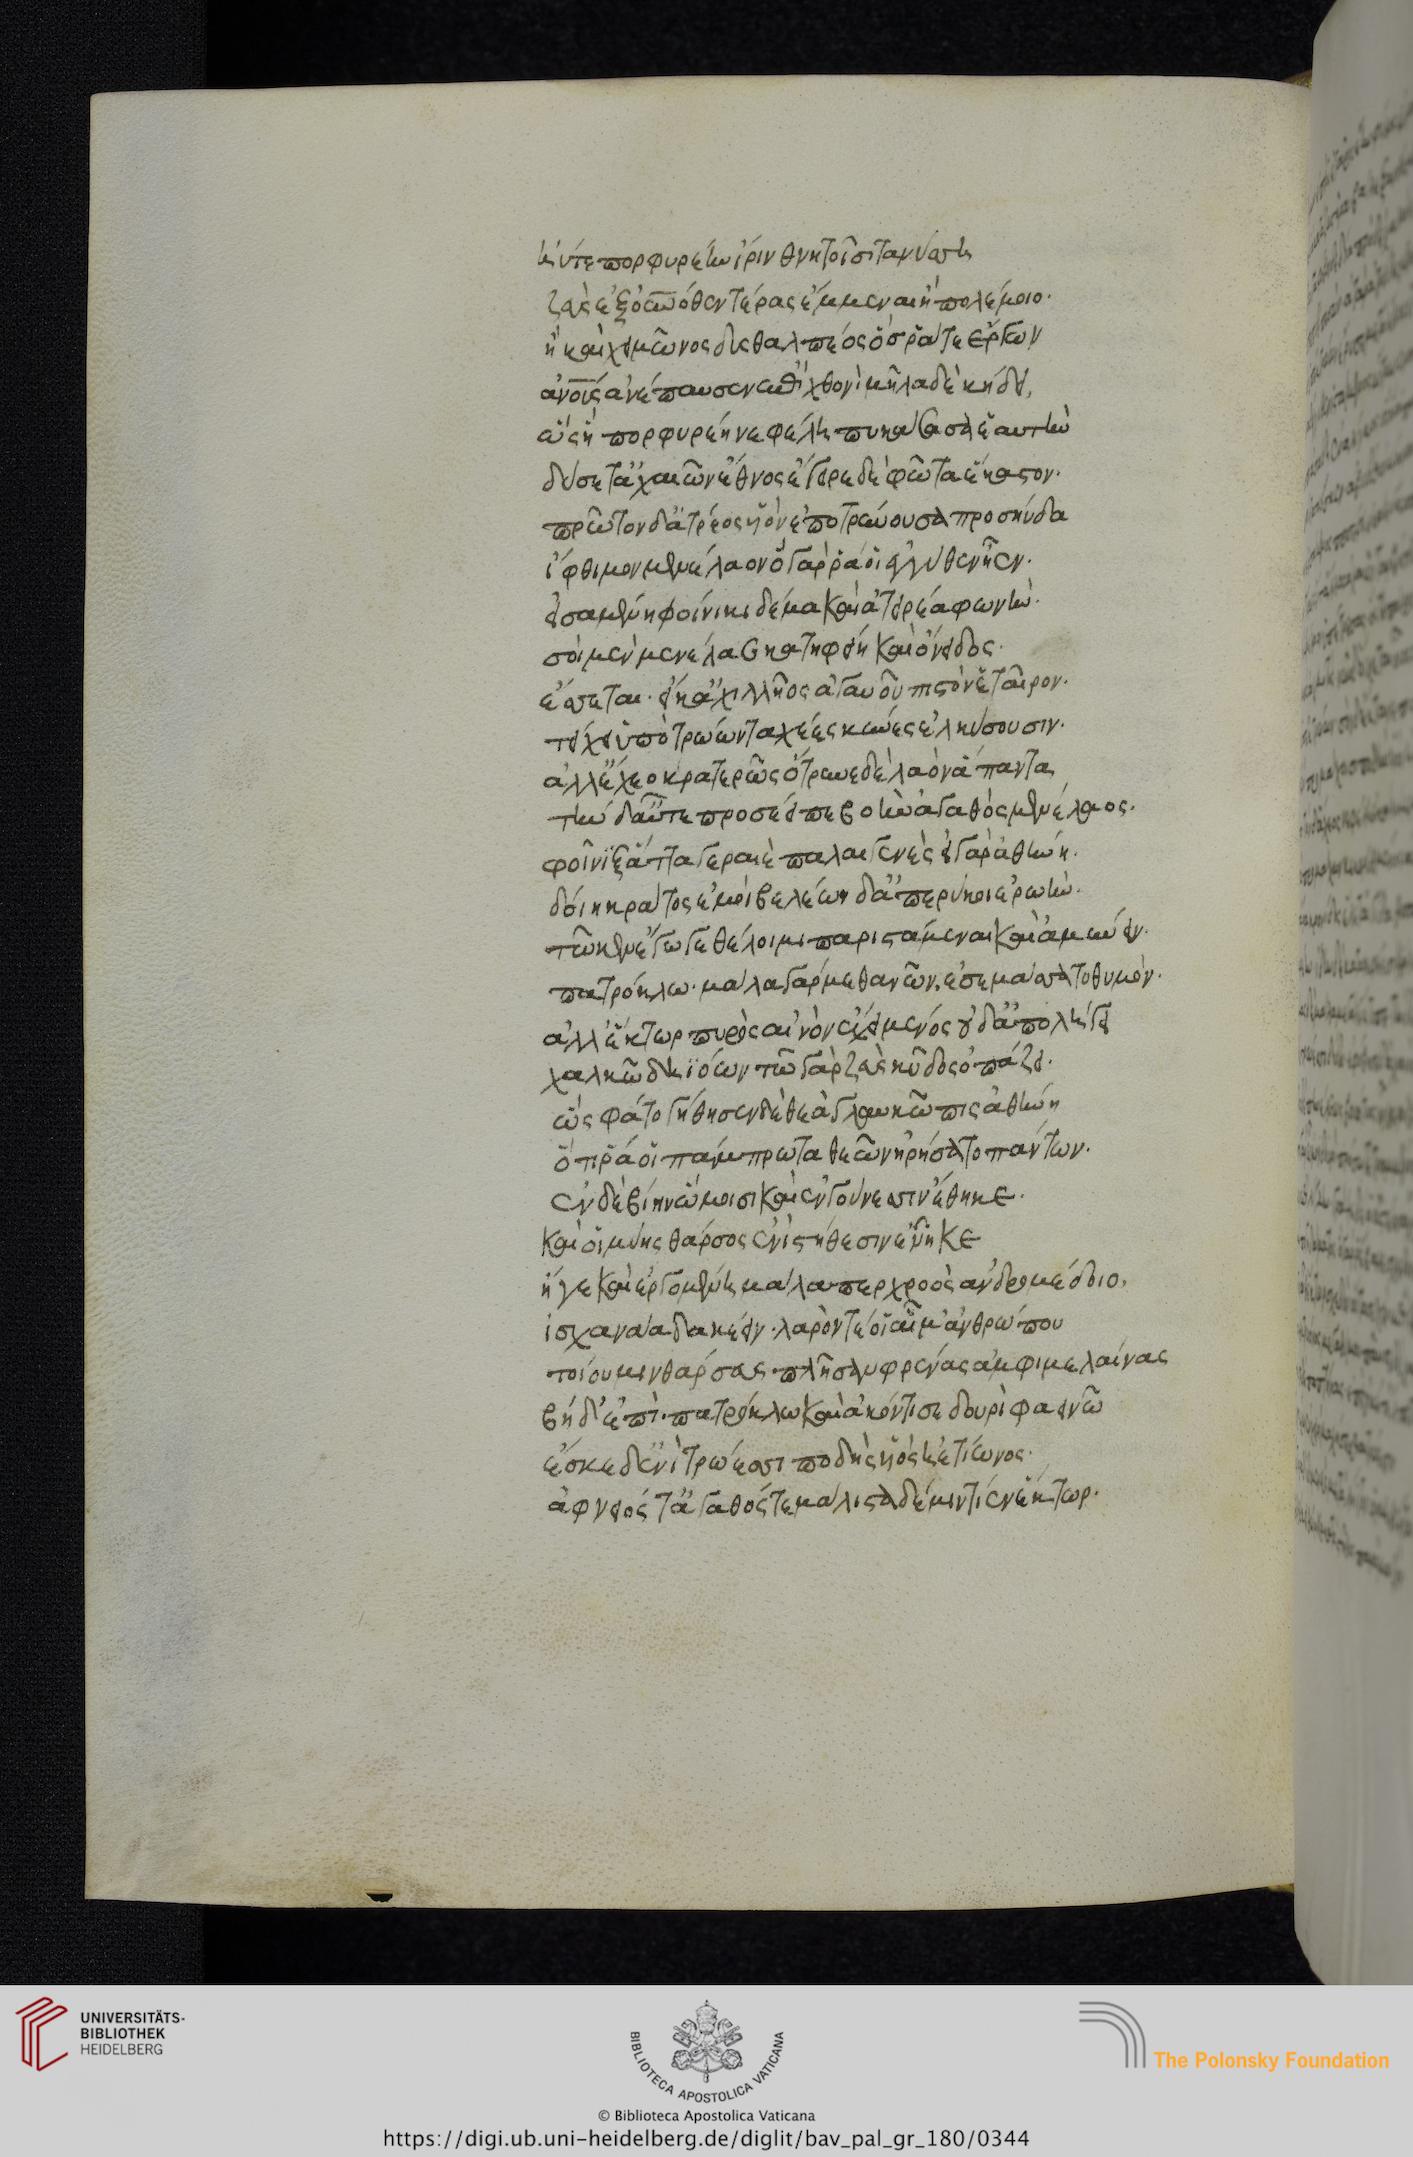 ἠύτε πορφυρέην ἶριν θνητοῖσι τανύσση
ζεὺς ἐξ οὐνόθεν τέρας ἔμμεναι ἢ πολέμοιο·
ἢ καὶ χειμῶνος δυσθαλπέος ὅς ῥά τε ἔργων
ἀνους ἀνέπαυσεν ἐπὶ χθονὶ μῆλα δὲ κήδει,
ὣς ἣ πορφυρέη νεφέλη πυκάσασα ἓ αὐτὴν
δύσετ' ἀχαιῶν ἔθνος ἔγειρε δὲ φῶτα ἕκαστον·
πρῶτον δ' ἀτρέος υἱὸν ἐποτρύνουσα προσηύδα
ἴφθιμον μενέλαον ὃ γάρ ῥά οἱ ἐγγύθεν ἦεν·
εἰσαμένη φοίνικι δέμα καὶ ἀτειρέα φωνὴν·
σοὶ μὲν μενέλαε κατηφείη καὶ ὄνειδος·
ἔσσεται· εἴ κ' ἀχιλλῆος ἀγαυοῦ πιστὸν ἑταῖρον·
τείχει ὑπὸ τρώων ταχέες κύνες ἑλκύσουσιν·
ἀλλ' ἔχεο κρατερῶς ὄτρυνε δὲ λαὸν ἅπαντα
τὴν δ' αὖτε προσέειπε βοὴν ἀγαθὸς μενέλαος·
φοῖνιξ ἄττα γεραιὲ παλαιγενὲς εἰ γὰρ ἀθήνη·
δοίη κράτος ἐμοὶ βελέων δ' ἀπερύκοι ἐρωὴν·
τῶ κεν ἔγωγε θέλοιμι παριστάμεναι καὶ ἀμύνειν·
πατρόκλω· μάλα γάρ με θανὼν, ἐσεμάσσατο θυμόν·
ἀλλ' ἕκτωρ πυρὸς αἰνὸν ἔχει μένος οὐδ' ἀπολήγει
χαλκῶ δηϊόων τῶ γὰρ ζεὺς κῦδος ὀπάζει·
ὣς φάτο γήθησεν δὲ θεὰ γλαυκῶπις ἀθήνη
ὅττι ῥά οἱ πάμπρωτα θεῶν ἠρήσατο πάντων·
ἐν δὲ βίην ὤμοισι καὶ ἐν γούνεσσιν ἔθηκε·
καί οἱ μύης θάρσος ἐνὶ στήθεσιν ἐνῆκε
ἥ γε καὶ ἐργομένη μάλα περ χροὸς ἀνδρομέοιο,
ἰσχανάα δακέειν· λαρόν τέ οἱ αἷμ' ἀνθρώπου
τοίου μιν θάρσευς πλῆσεν φρένας ἀμφιμελαίνας
βῆ δ' ἐπὶ· πατρόκλω καὶ ἀκόντισε δουρὶ φαεινῶ
ἔσκε δ' ἐνὶ τρώεσσι ποδῆς υἱὸς ἠετίωνος·
ἀφνειός τ' ἀγαθός τε μάλιστα δέ μιν τίεν ἕκτωρ·
UNIVERSITÄTS-
BIBLIOTHEK
HEIDELBERG
BIBLIOTECA APOSTOLICA VATICANA
The Polonsky Foundation
© Biblioteca Apostolica Vaticana
https://digi.ub.uni-heidelberg.de/diglit/bav_pal_gr_180/0344